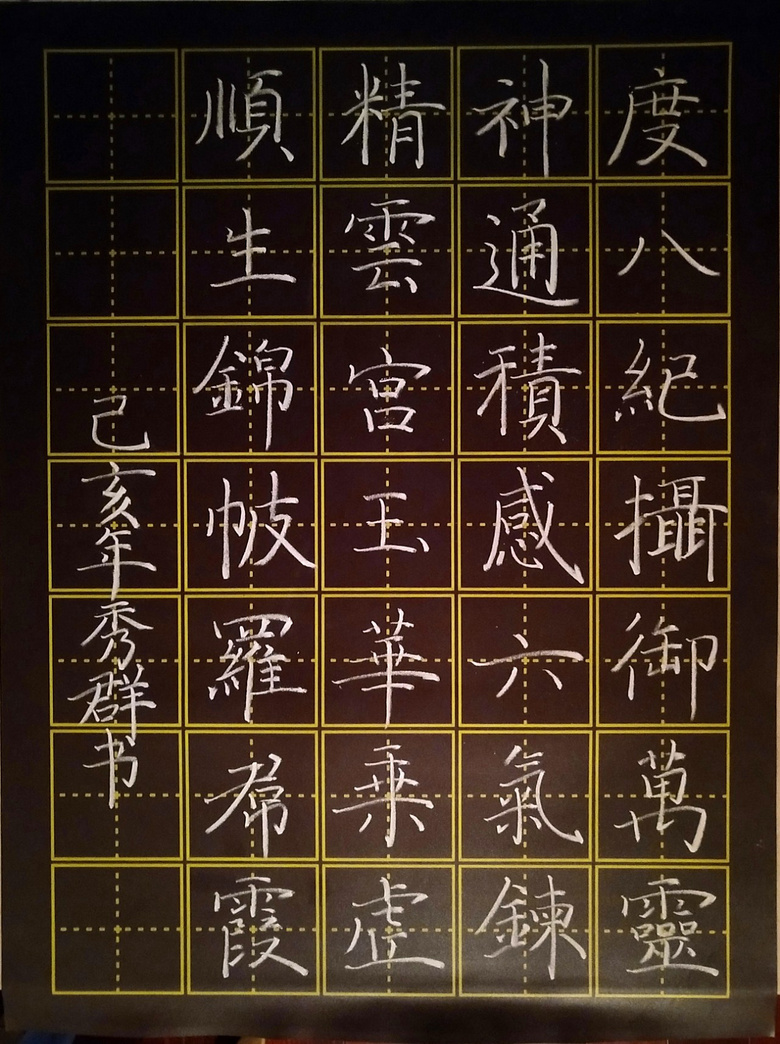 度八紀攝御萬靈
神通積感六氣鍊
精雲宮玉華乗虛
順生錦帔羅帬霞
己亥年秀群书